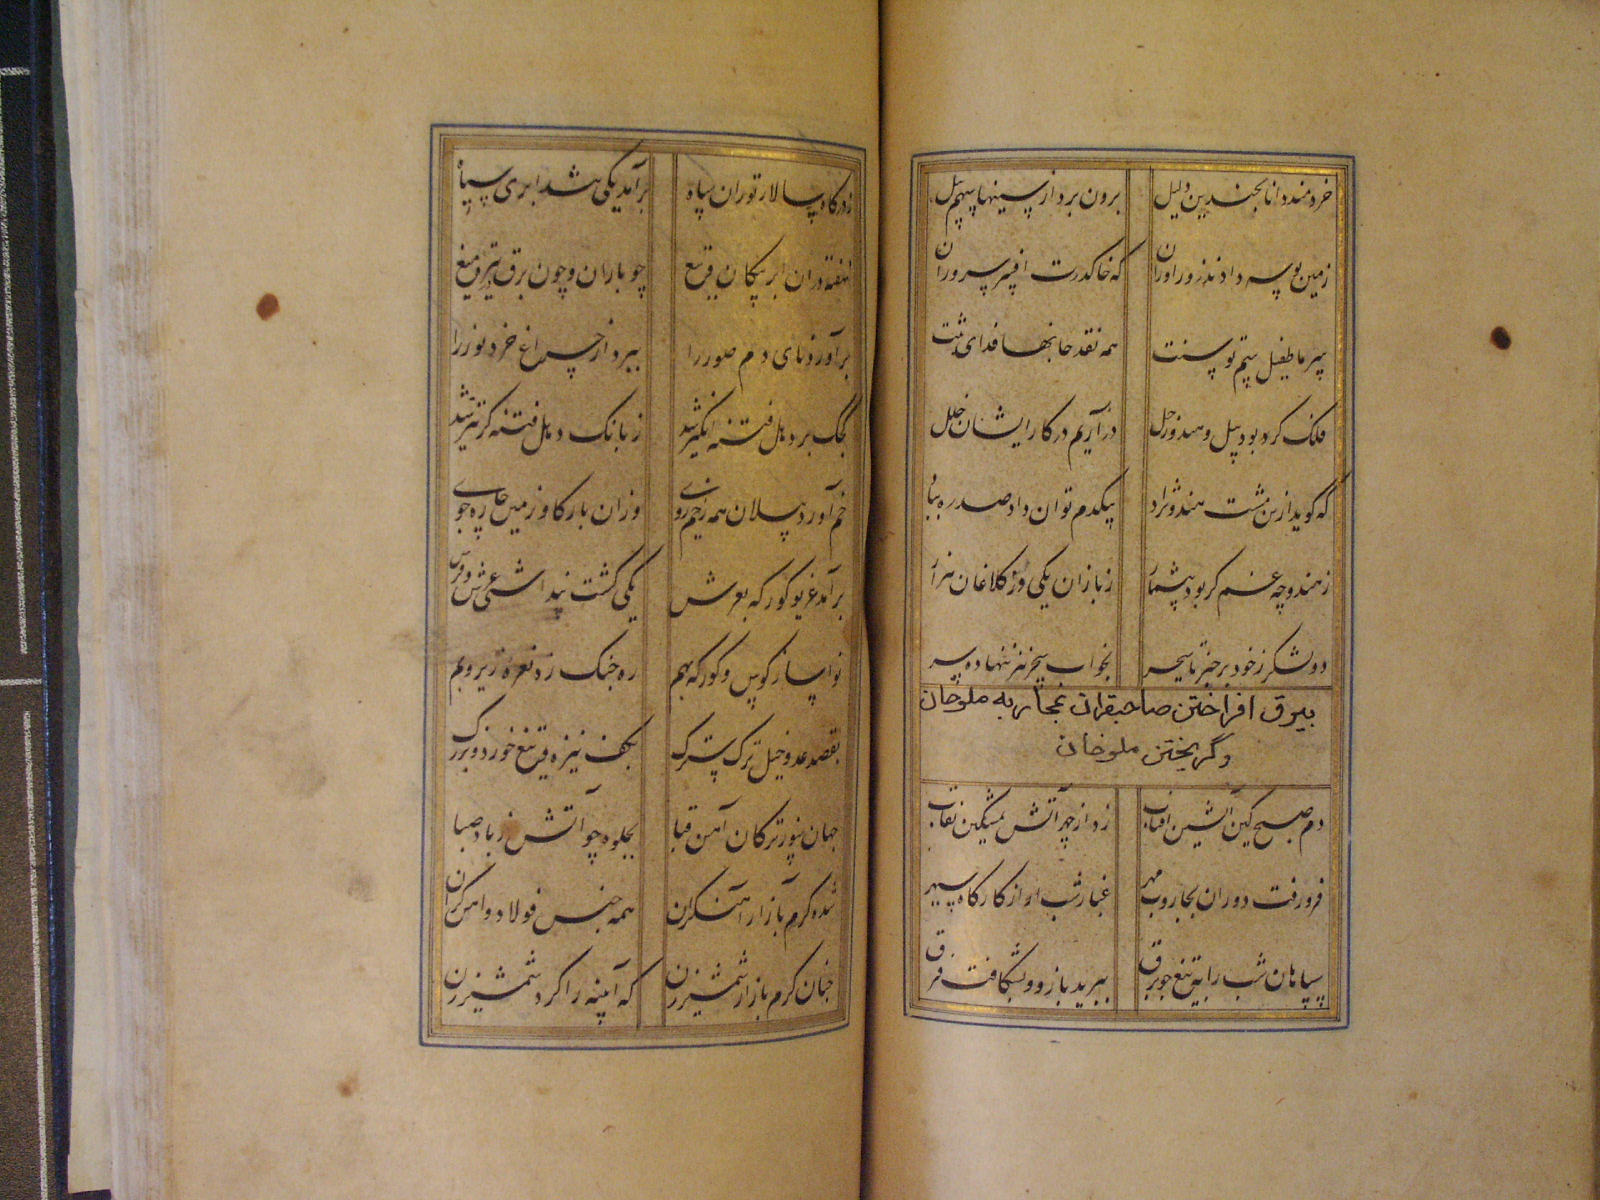 خردمند دانا بچندین دلیل برون برد از سینها سهم پیل
زمین بوسه دادند زورآوران که خاک درت افسر سروران
سر ما طفیل سم توسنت همه نقد جانها فدای تنت
فلک گر بود پیل و هندو زحل درآریم در کار ایشان خلل
که گوید ازین مشت هندو نژاد بیکدم توان داد صد ره بباد
ز هندو چه غم گر بود بیشمار ز بازان یکی وز کلاغان هزار
دو لشکر ز خود بر حذر تا سحر بخواب سحر نیز ننهاده سر
بیرق افراختن صاحبقران بمحاربه ملوخان
وگریختن ملوخان
دم صبح کین آتشین آفتاب زد از چهر آتش مشکین نقاب
فرو رفت دوران بجاروب مهر غبار شب او از کارگاه سپهر
سپاهان شب را بتیغ چو برق ببرید بازو و بشکافت فرق
ز درگاه سالار توران سپاه برآمد یکی شد ابری سیاه
نهفته در آن ابر پیکان و تیغ چو باران و چون برق تیز و میغ
برآورد نای دم صور را ببرد از چراغ خرد نور را
بجنگ بر دهل فتنه انگیز شد ز بانگ دهل فتنه گر تیز شد
خم آورد پیلان همه زخم روی وزان بار گاو زمین چاره جوی
برآمد غریو کورکه بعرش یکی گشت پنداشتی عرش و فرش
نوا ساز کوس و کورکه بهم ره جنگ زد نعره زیر و بم
بقصد عدو خیل ترک سترک بکف نیزه و تیغ خورد و بزرگ
جهان سوز ترکان آهن قبا بجلوه چو آتش ز باد صبا
شده گرم بازار آهنگران همه جنس فولاد و آهن گران
چنان گرم بازار شمشیر زن که آیینه را کرد شمشیر زن